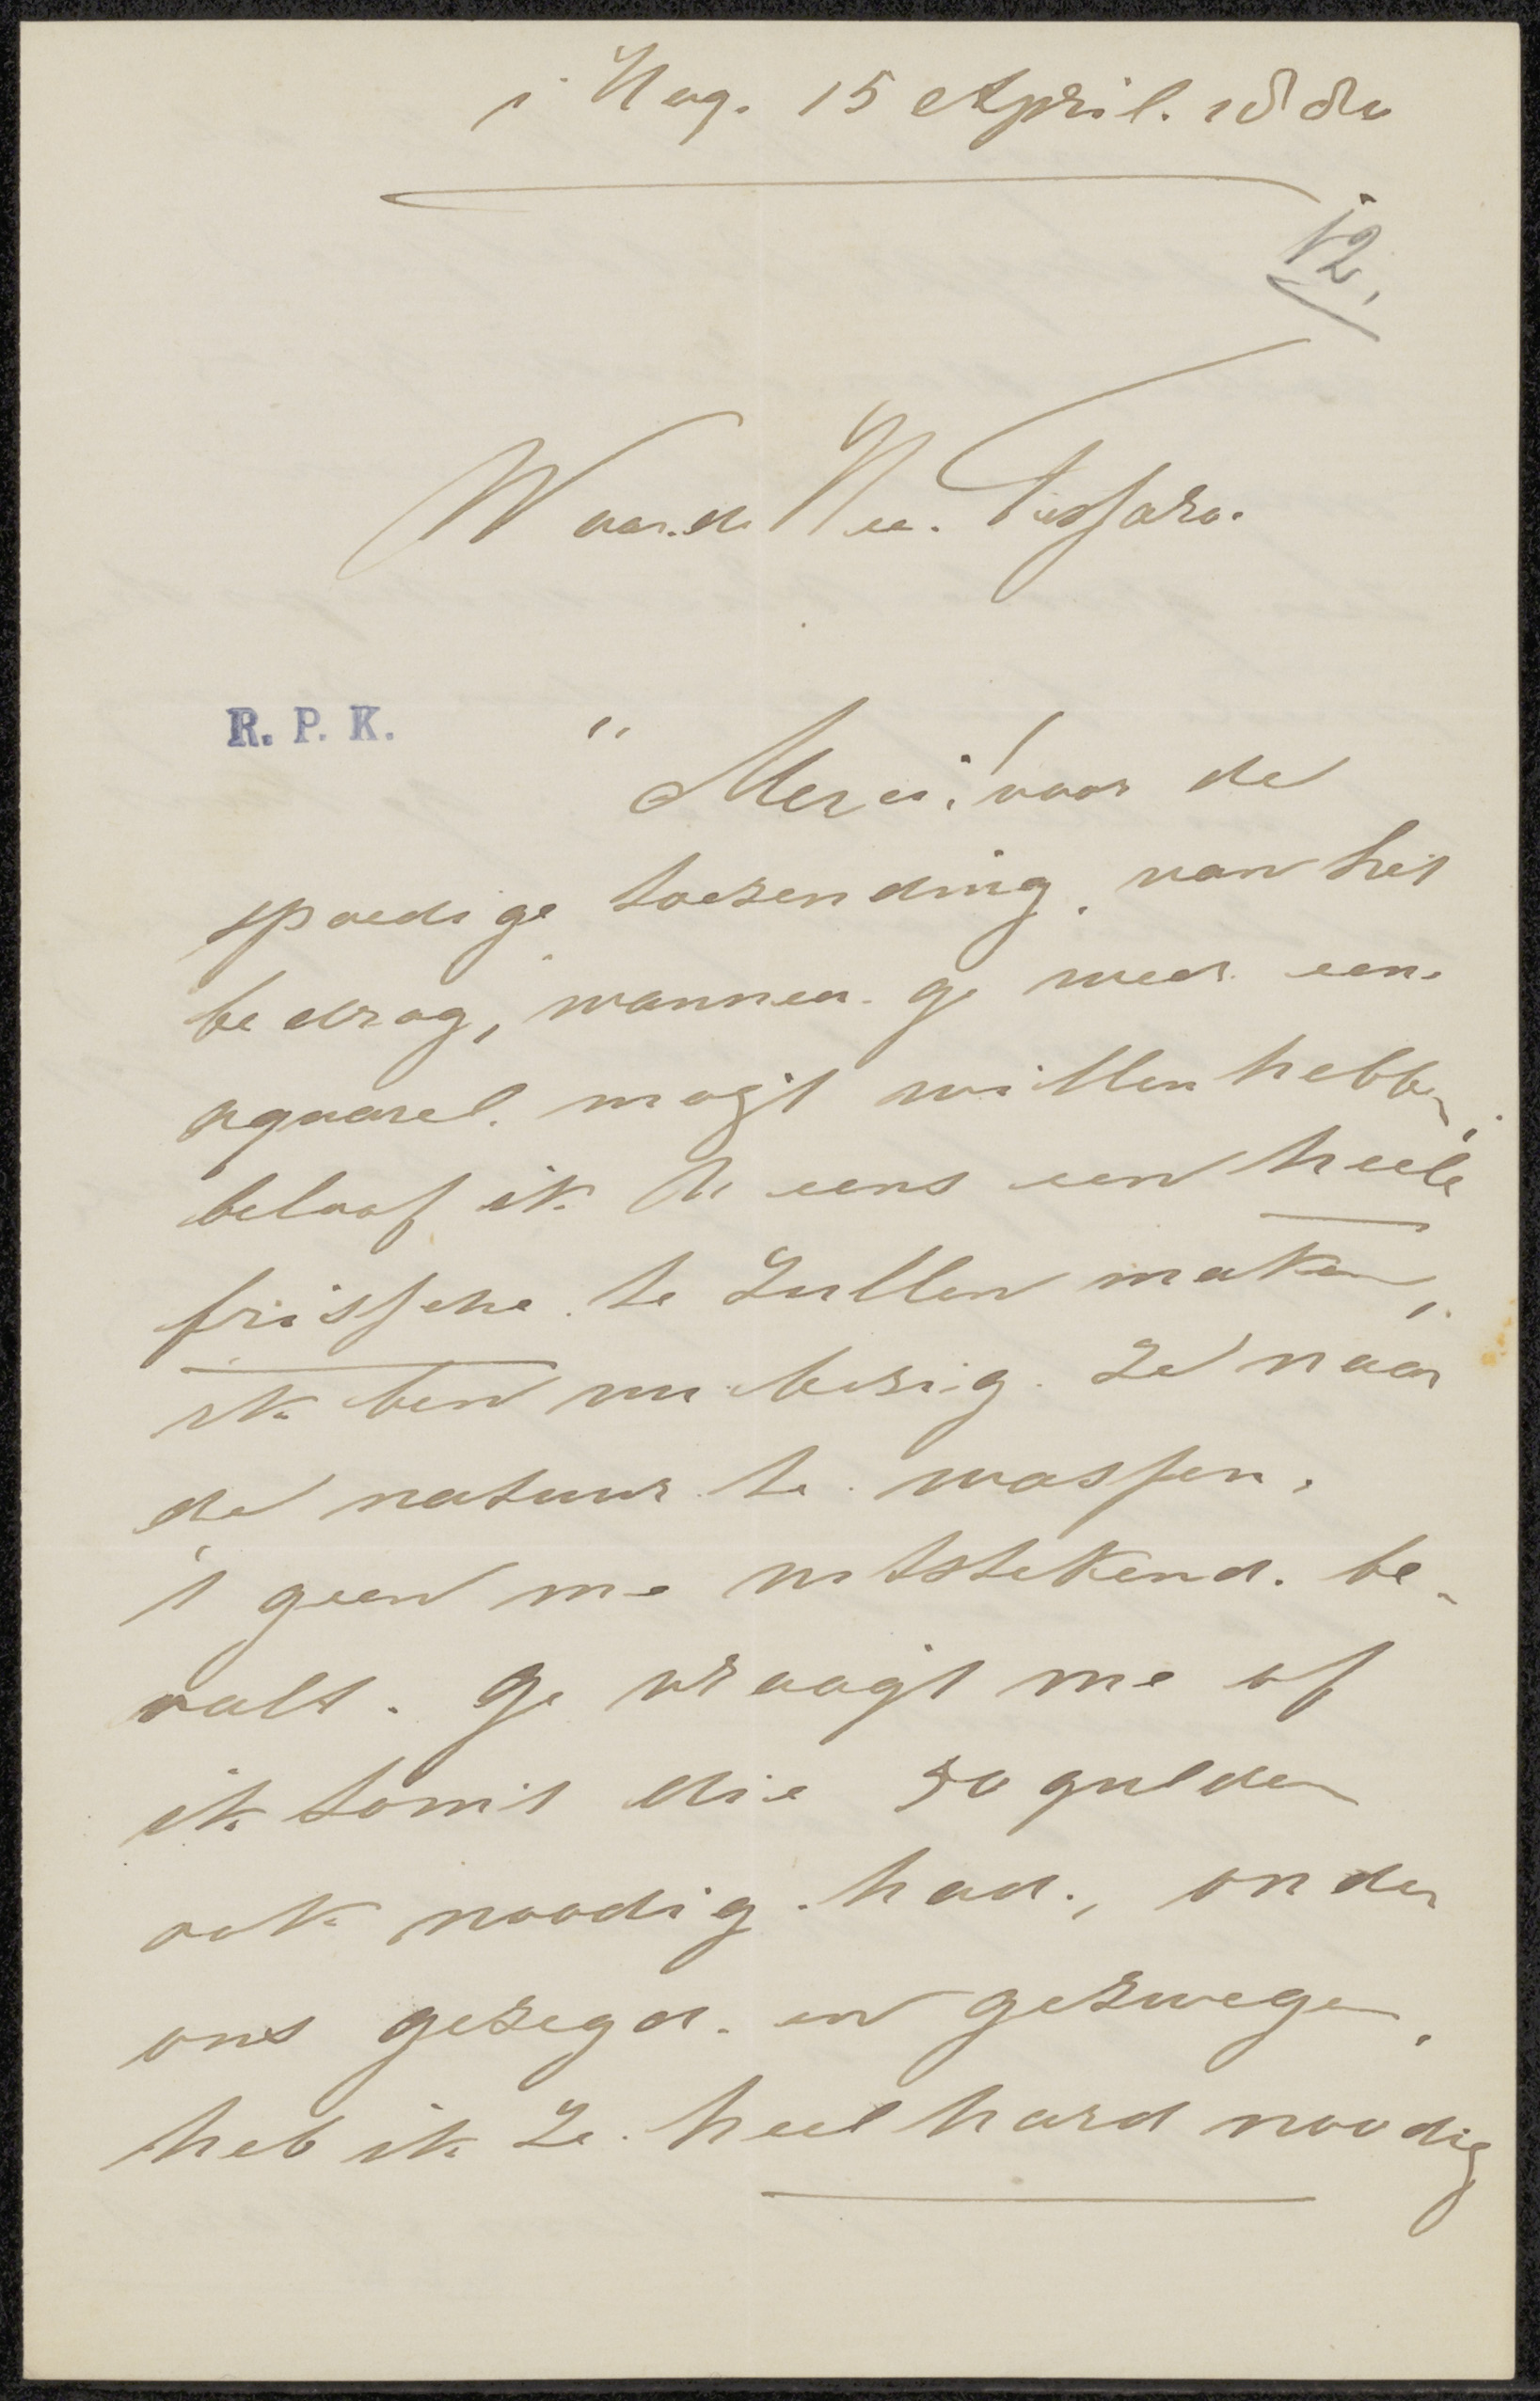 's Hag. 15 April. 1882
12.
Waarde Heer. Tersteeg.
R. P. K.
" Merci! voor de
spoedige toezending, van het
bedrag, wanneer ge weer eens
aquarel. mogt willen hebben,
beloof ik U eens een heele
frissche te zullen maken,
ik ben nu bezig ze naar
de natuur te wasschen,
't geen me uitstekend. be-
valt. Ge vraagt me of
ik somt die 50 gulden
ook noodig had., onder
ons gezegd. en gezwegen,
heb ik ze heel hard noodig